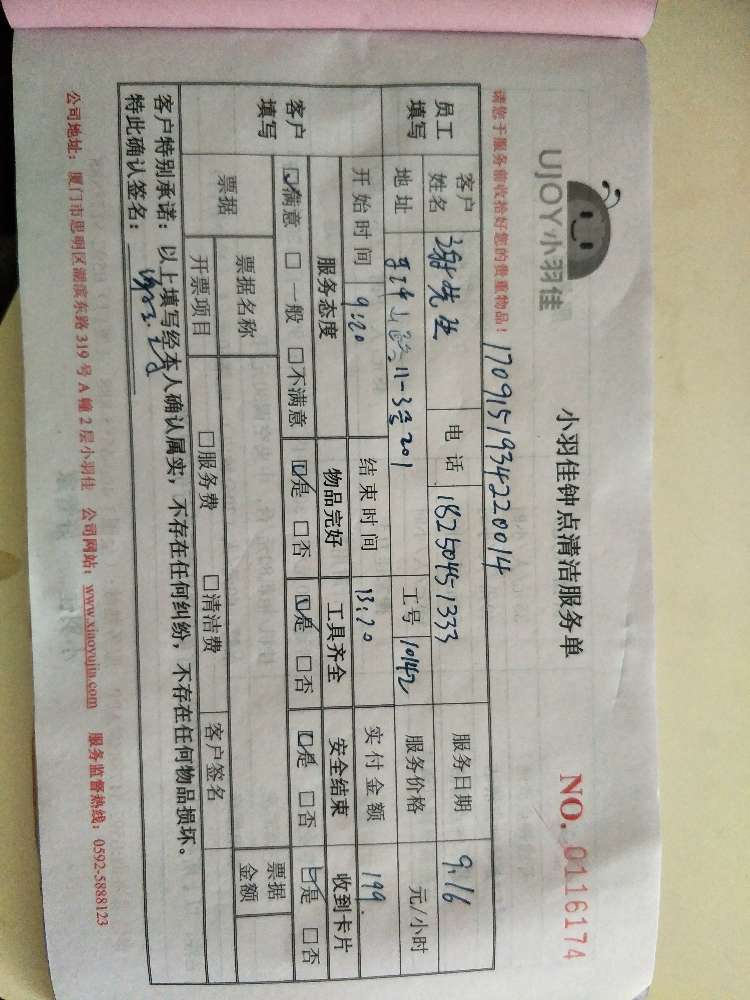 UJOY小羽佳
小羽佳钟点清洁服务单
NO. 0116174
请您于服务前收拾好您的贵重物品!
1709151934220014
员工填写 客户姓名 谢先生 电话 18250451333 服务日期 9.16
地址 11-3号201 工号 10142 服务价格 元/小时
开始时间 9:20 结束时间 13:20 实付金额 199.
客户填写 服务态度 物品完好 工具齐全 安全结束 收到卡片
☑满意 □一般 □不满意 ☑是 □否 ☑是 □否 ☑是 □否 ☑是 □否
票据 票据名称 票据金额
开票项目 □服务费 □清洁费 客户签名
客户特别承诺:以上填写经本人确认属实,不存在任何纠纷,不存在任何物品损坏。
特此确认签名:
公司地址:厦门市思明区湖滨东路 319 号 A 幢 2 层小羽佳 公司网站:www.xiaoyujia.com 服务监督热线:0592-5888123